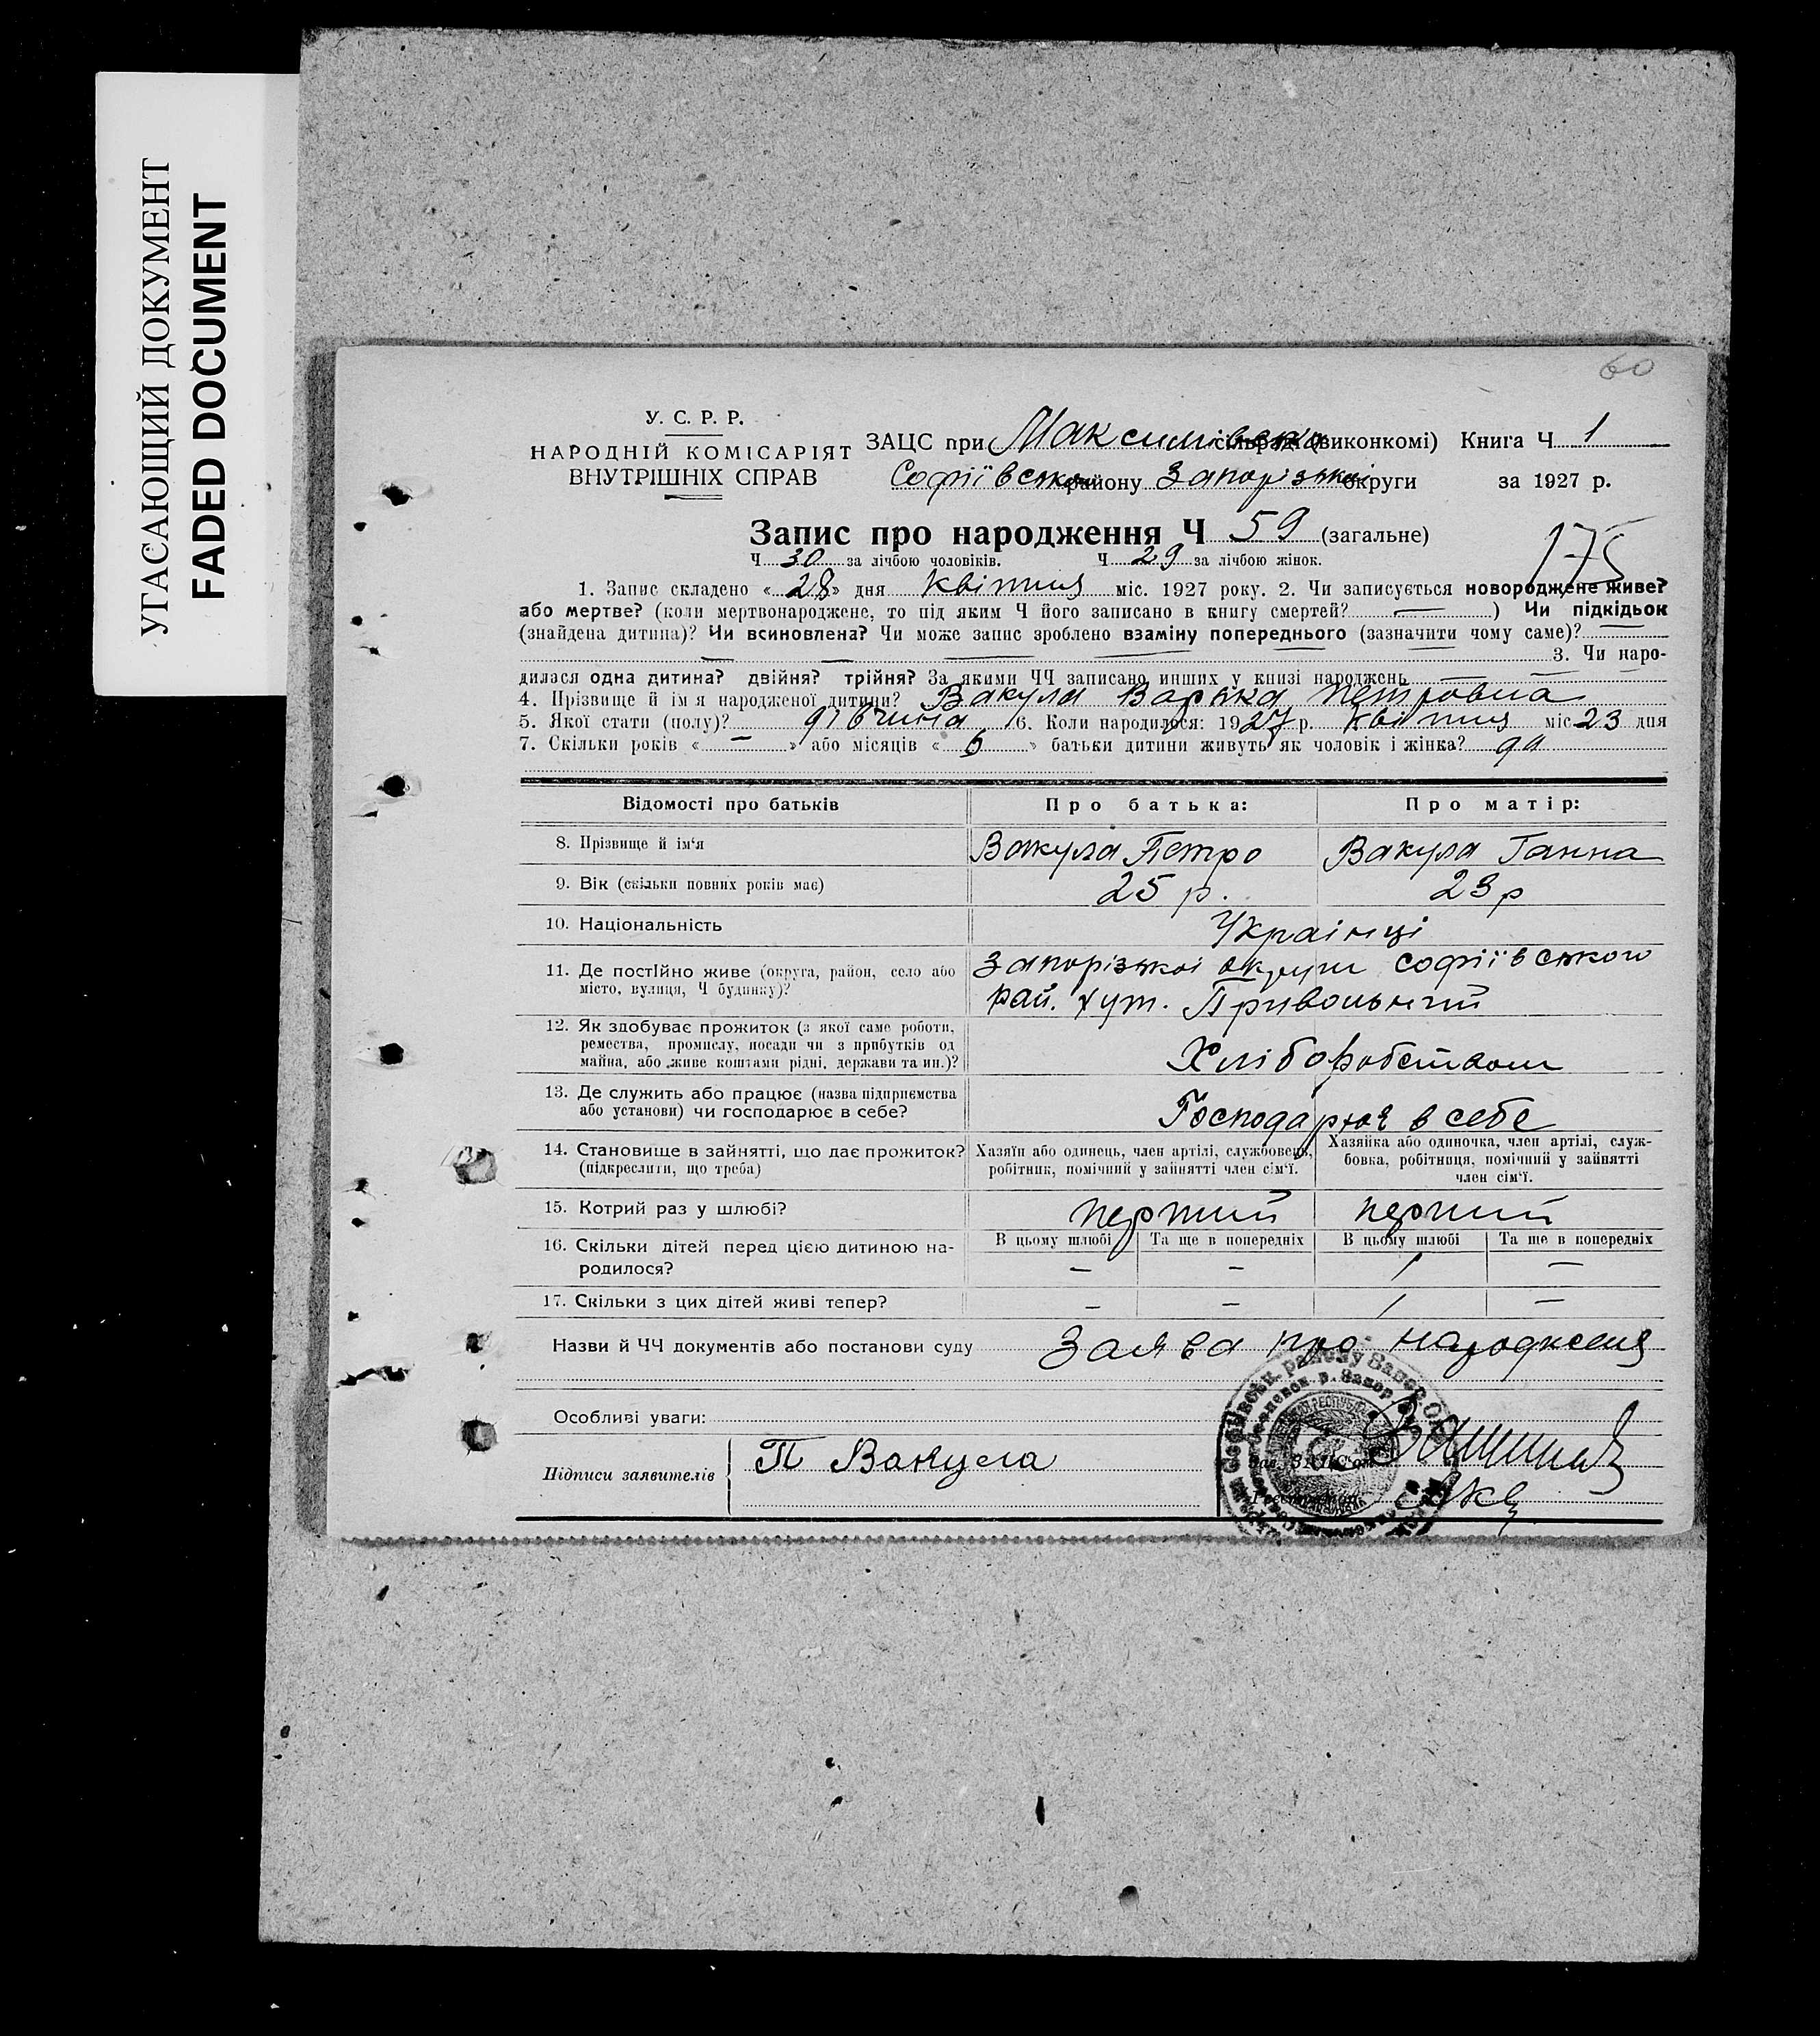 УГАСАЮЩИЙ ДОКУМЕНТ
FADED DOCUMENT
60
У. С. Р. Р.
НАРОДНІЙ КОМІСАРІЯТ
ВНУТРІШНІХ СПРАВ
ЗАЦС при Максимівська (виконкомі) Книга Ч 1
Софіївськ району Запорізької округи за 1927 р.
Запис про народження Ч 59 (загальне)
175
Ч 30 за лічбою чоловіків. Ч 29 за лічбою жінок.
1. Запис складено « 28 » дня квітня міс. 1927 року. 2. Чи записується новороджене живе?
або мертве? (коли мертвонароджене, то під яким Ч його записано в книгу смертей? — ) Чи підкідьок
(знайдена дитина)? Чи всиновлена? Чи може запис зроблено взаміну попереднього (зазначити чому саме)? —
3. Чи наро-
дилася одна дитина? двійня? трійня? За якими ЧЧ записано инших у книзі народжень
4. Прізвище й ім я народженої дитини? Вакула Варька Петровна
5. Якої стати (полу)? дівчина 6. Коли народилося: 1927 р. квітня міс 23 дня
7. Скільки років « — » або місяців « 6 » батьки дитини живуть як чоловік і жінка? да
Відомості про батьків Про батька: Про матір:
8. Прізвище й ім'я Вакула Петро Вакула Ганна
9. Вік (скільки повних років має) 25 р. 23 р
10. Національність Українці
11. Де постійно живе (округа, район, село або
місто, вулиця, Ч будинку)?
Запорізкої округи софіївського
рай. хут. Привольний
12. Як здобуває прожиток (з якої саме роботи,
ремества, промислу, посади чи з прибутків од
майна, або живе коштами рідні, держави та ин.)?
Хліборобством
13. Де служить або працює (назва підприємства
або установи) чи господарює в себе?
Господарює в себе
14. Становище в зайнятті, що дає прожиток?
(підкреслити, що треба)
Хазяїн або одинець, член артілі, службовець,
робітник, помічний у зайнятті член сім'ї.
Хазяйка або одиночка, член артілі, служ-
бовка, робітниця, помічний у зайнятті
член сім'ї.
15. Котрий раз у шлюбі? перший перший
16. Скільки дітей перед цією дитиною на-
родилося?
В цьому шлюбі Та ще в попередніх В цьому шлюбі Та ще в попередніх
— — / —
17. Скільки з цих дітей живі тепер? — — / —
Назви й ЧЧ документів або постанови суду Заява про народженя
Особливі уваги:
Підписи заявителів П Вакула